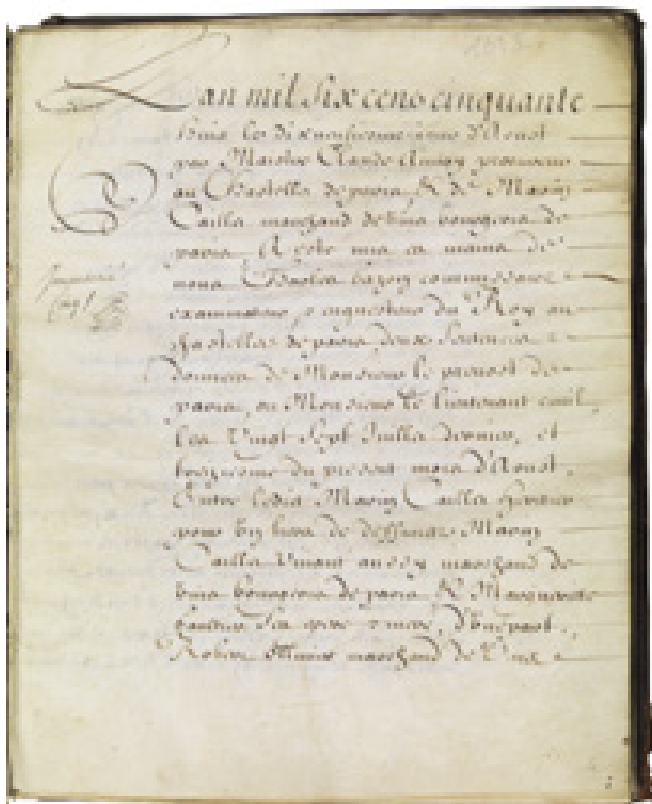 1658
Lan mil six cens cinquante
huict le dixneufiesme jour d'Aoust
par Maistre Claude procureur
au Chastellet de paris, & de Marin
Caillet marchand de vins bourgeois de
paris. A esté mis es mains de
nous Charles commissaire
examinateur, enquesteur du Roy au
Chastellet de paris, deux sentences
données de Monsieur le prevost de
paris, ou Monsieur le lieutenant civil,
les vingt sept Juillet dernier, et
treiziesme du present mois d'Aoust,
Entre ledit Marin Caillet heritier
pour de deffunctz Marin
Caillet vivant aussy marchand de
vins bourgeois de paris & Marguerite
ses pere & mere, d'une part,
Robert Ollivier marchand de vins